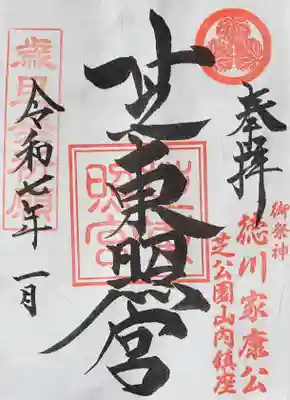 奉拝
御祭神
徳川家康公
芝公園山内鎮座
芝東照宮
令和七年 一月